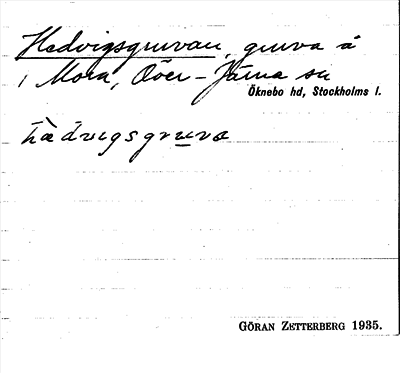 Hedvigsgruvan, gruva å
1 Mora, Över-Järna sn
Öknebo hd, Stockholms l.
hædvigsgruva
GÖRAN ZETTERBERG 1935.